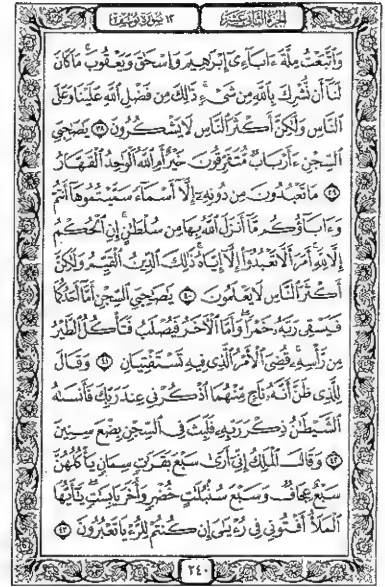 الجزء الثاني عشر ١٢ سورة يوسف
وَاتَّبَعْتُ مِلَّةَ ءَابَآءِىٓ إِبْرَٰهِيمَ وَإِسْحَٰقَ وَيَعْقُوبَ ۚ مَا كَانَ
لَنَآ أَن نُّشْرِكَ بِٱللَّهِ مِن شَىْءٍ ۚ ذَٰلِكَ مِن فَضْلِ ٱللَّهِ عَلَيْنَا وَعَلَى
ٱلنَّاسِ وَلَٰكِنَّ أَكْثَرَ ٱلنَّاسِ لَا يَشْكُرُونَ ٣٨ يَٰصَٰحِبَىِ
ٱلسِّجْنِ ءَأَرْبَابٌ مُّتَفَرِّقُونَ خَيْرٌ أَمِ ٱللَّهُ ٱلْوَٰحِدُ ٱلْقَهَّارُ
٣٩ مَا تَعْبُدُونَ مِن دُونِهِۦٓ إِلَّآ أَسْمَآءً سَمَّيْتُمُوهَآ أَنتُمْ
وَءَابَآؤُكُم مَّآ أَنزَلَ ٱللَّهُ بِهَا مِن سُلْطَٰنٍ ۚ إِنِ ٱلْحُكْمُ
إِلَّا لِلَّهِ ۚ أَمَرَ أَلَّا تَعْبُدُوٓا۟ إِلَّآ إِيَّاهُ ۚ ذَٰلِكَ ٱلدِّينُ ٱلْقَيِّمُ وَلَٰكِنَّ
أَكْثَرَ ٱلنَّاسِ لَا يَعْلَمُونَ ٤٠ يَٰصَٰحِبَىِ ٱلسِّجْنِ أَمَّآ أَحَدُكُمَا
فَيَسْقِى رَبَّهُۥ خَمْرًا ۖ وَأَمَّا ٱلْءَاخَرُ فَيُصْلَبُ فَتَأْكُلُ ٱلطَّيْرُ
مِن رَّأْسِهِۦ ۚ قُضِىَ ٱلْأَمْرُ ٱلَّذِى فِيهِ تَسْتَفْتِيَانِ ٤١ وَقَالَ
لِلَّذِى ظَنَّ أَنَّهُۥ نَاجٍ مِّنْهُمَا ٱذْكُرْنِى عِندَ رَبِّكَ فَأَنسَىٰهُ
ٱلشَّيْطَٰنُ ذِكْرَ رَبِّهِۦ فَلَبِثَ فِى ٱلسِّجْنِ بِضْعَ سِنِينَ
٤٢ وَقَالَ ٱلْمَلِكُ إِنِّىٓ أَرَىٰ سَبْعَ بَقَرَٰتٍ سِمَانٍ يَأْكُلُهُنَّ
سَبْعٌ عِجَافٌ وَسَبْعَ سُنۢبُلَٰتٍ خُضْرٍ وَأُخَرَ يَابِسَٰتٍ ۖ يَٰٓأَيُّهَا
ٱلْمَلَأُ أَفْتُونِى فِى رُءْيَٰىَ إِن كُنتُمْ لِلرُّءْيَا تَعْبُرُونَ ٤٣
٢٤٠